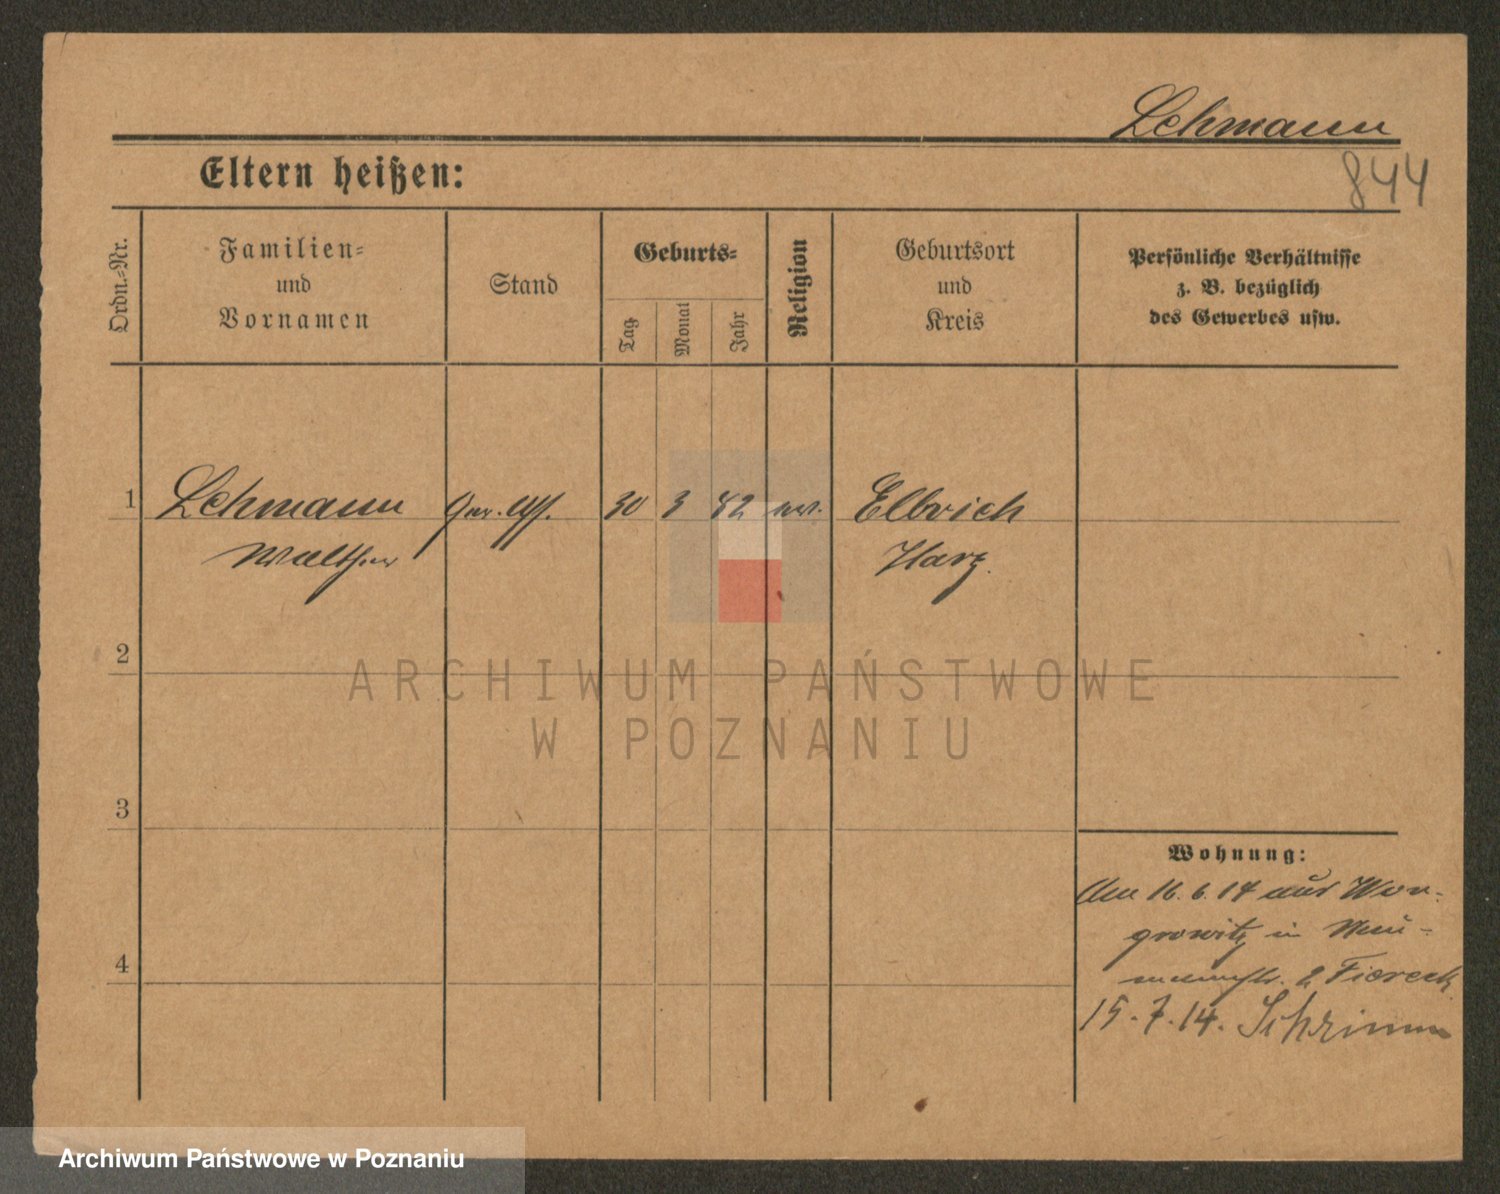 Lehmann
844
Eltern heißen:
Ordn.-Nr.
Familien-
und
Vornamen
Stand
Geburts-
Tag
Monat
Jahr
Religion
Geburtsort
und
Kreis
Persönliche Verhältnisse
z. B. bezüglich
des Gewerbes usw.
1 Lehmann Ger. Ass. 30 3 82 ev. Elbrich
Walther Harz.
2
ARCHIWUM PAŃSTWOWE
W POZNANIU
3
Wohnung:
Am 16.6.14 aus Won-
growitz in Neu-
2 Fiereck
4
15.7.14. Schrimm
Archiwum Państwowe w Poznaniu